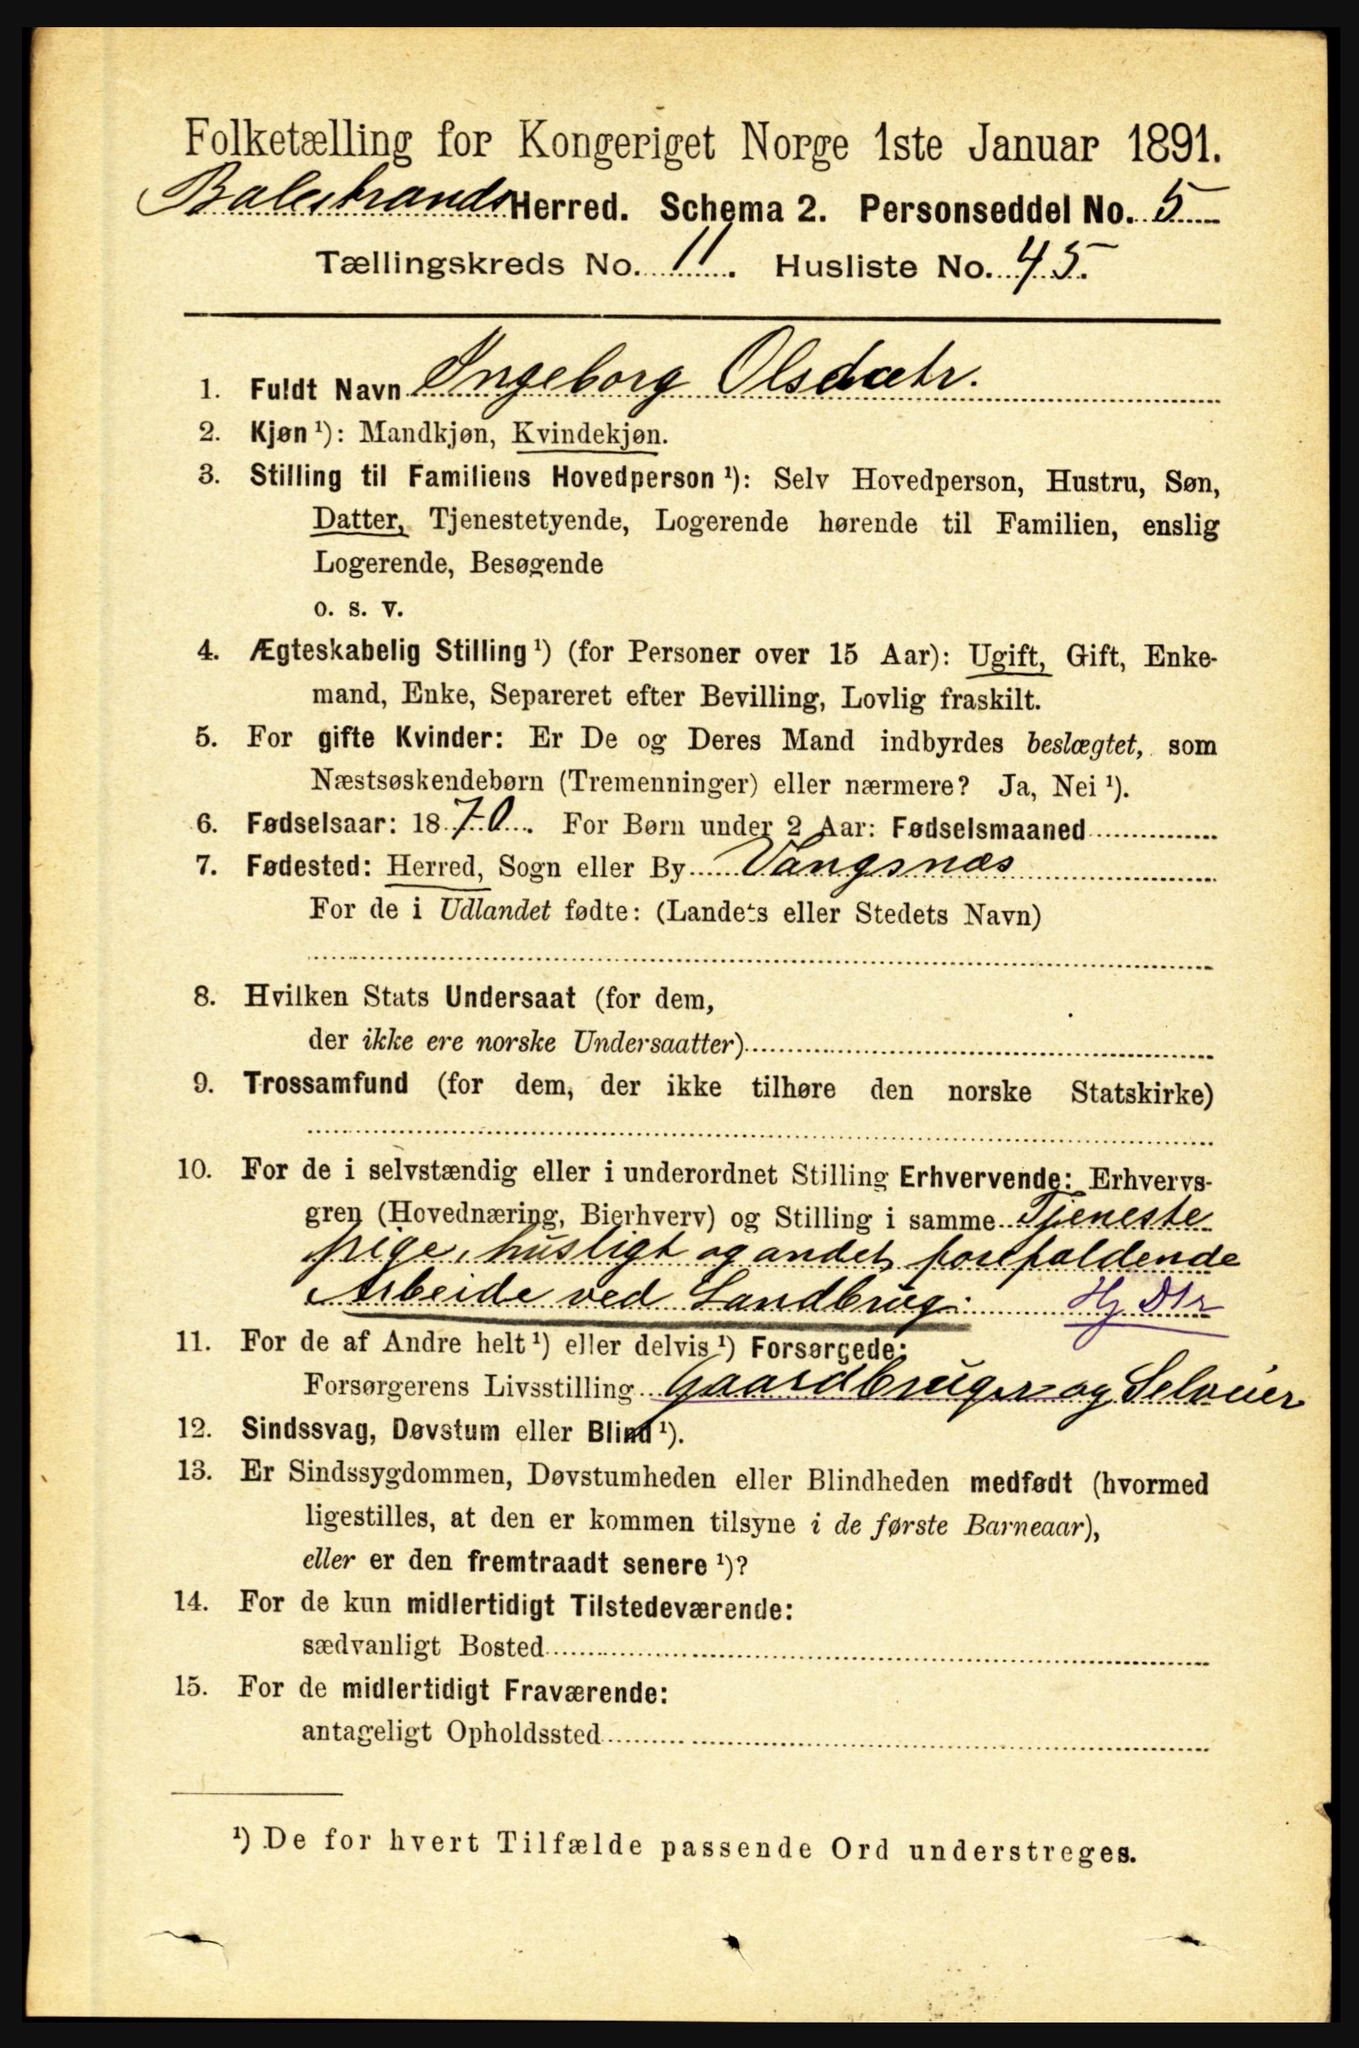 Folketælling for Kongeriget Norge 1ste Januar 1891.
Balestrands Herred. Schema 2. Personseddel No. 5
Tællingskreds No. 11. Husliste No. 45.
1. Fuldt Navn Ingeborg Olsdatr.
2. Kjøn ¹): Mandkjøn, Kvindekjøn.
3. Stilling til Familiens Hovedperson ¹): Selv Hovedperson, Hustru, Søn,
Datter, Tjenestetyende, Logerende hørende til Familien, enslig
Logerende, Besøgende
o. s. v.
4. Ægteskabelig Stilling ¹) (for Personer over 15 Aar): Ugift, Gift, Enke-
mand, Enke, Separeret efter Bevilling, Lovlig fraskilt.
5. For gifte Kvinder: Er De og Deres Mand indbyrdes beslægtet, som
Næstsøskendebørn (Tremenninger) eller nærmere? Ja, Nei ¹).
6. Fødselsaar: 1870. For Børn under 2 Aar: Fødselsmaaned
7. Fødested: Herred, Sogn eller By Vangsnæs
For de i Udlandet fødte: (Landets eller Stedets Navn)
8. Hvilken Stats Undersaat (for dem,
der ikke ere norske Undersaatter)
9. Trossamfund (for dem, der ikke tilhøre den norske Statskirke)
10. For de i selvstændig eller i underordnet Stilling Erhvervende: Erhvervs-
gren (Hovednæring, Bierhverv) og Stilling i samme Tjeneste
pige, husligt og andet forefaldende
Arbeide ved Landbrug. Hj Dtr
11. For de af Andre helt ¹) eller delvis ¹) Forsørgede:
Forsørgerens Livsstilling Gaardbruger og Selveier
12. Sindssvag, Døvstum eller Blind ¹).
13. Er Sindssygdommen, Døvstumheden eller Blindheden medfødt (hvormed
ligestilles, at den er kommen tilsyne i de første Barneaar),
eller er den fremtraadt senere ¹)?
14. For de kun midlertidigt Tilstedeværende:
sædvanligt Bosted
15. For de midlertidigt Fraværende:
antageligt Opholdssted
¹) De for hvert Tilfælde passende Ord understreges.